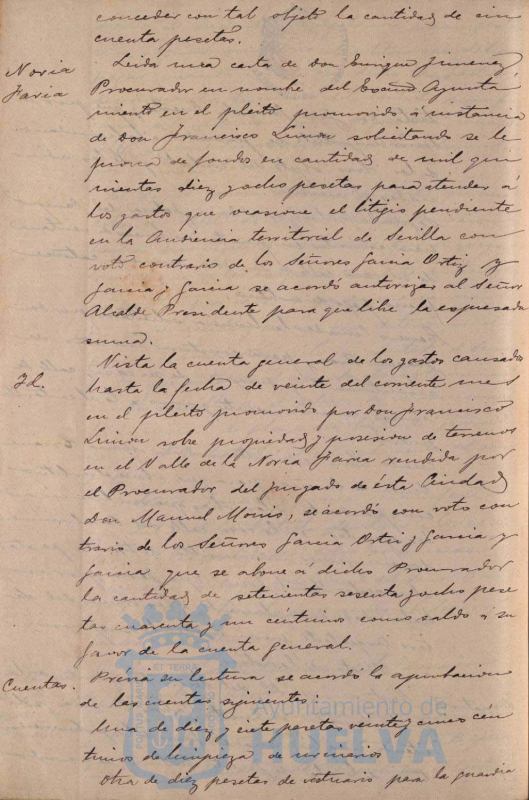 conceder con tal objeto la cantidad de cin
cuenta pesetas.
Noria
Faria
Leida una carta de Don Enrique Jimenez
Procurador en nombre del Excmo Ayunta
miento en el pleito promovido á instancia
de Don Francisco Limon solicitando se le
provea de fondos en cantidad de mil qui
nientas diez y ocho pesetas para atender á
los gastos que ocasione el litigio pendiente
en la Audiencia territorial de Sevilla con
voto contrario de los Señores Garcia Ortiz y
Garcia y Garcia se acordó autorizar al Señor
Alcalde Presidente para que libre la expresada
suma.
Id.
Vista la cuenta general de los gastos causados
hasta la fecha de veinte del corriente mes
en el pleito promovido por Don Francisco
Limon sobre propiedad y posesion de terrenos
en el Valle de la Noria Faria rendida por
el Procurador del Juzgado de ésta Ciudad
Don Manuel Monis, se acordó con voto con
trario de los Señores Garcia Ortiz y Garcia y
Garcia que se abone á dicho Procurador
la cantidad de setecientas sesenta y ocho pese
tas cuarenta y un céntimos como saldo á su
favor de la cuenta general.
Cuentas.
Prévia su lectura se acordó la aprobacion
de las cuentas siguientes:
Una de diez y siete pesetas veinte y cinco cén
timos de limpieza de urinarios
Otra de diez pesetas de vestuario para la guardia
Ayuntamiento de
HUELVA